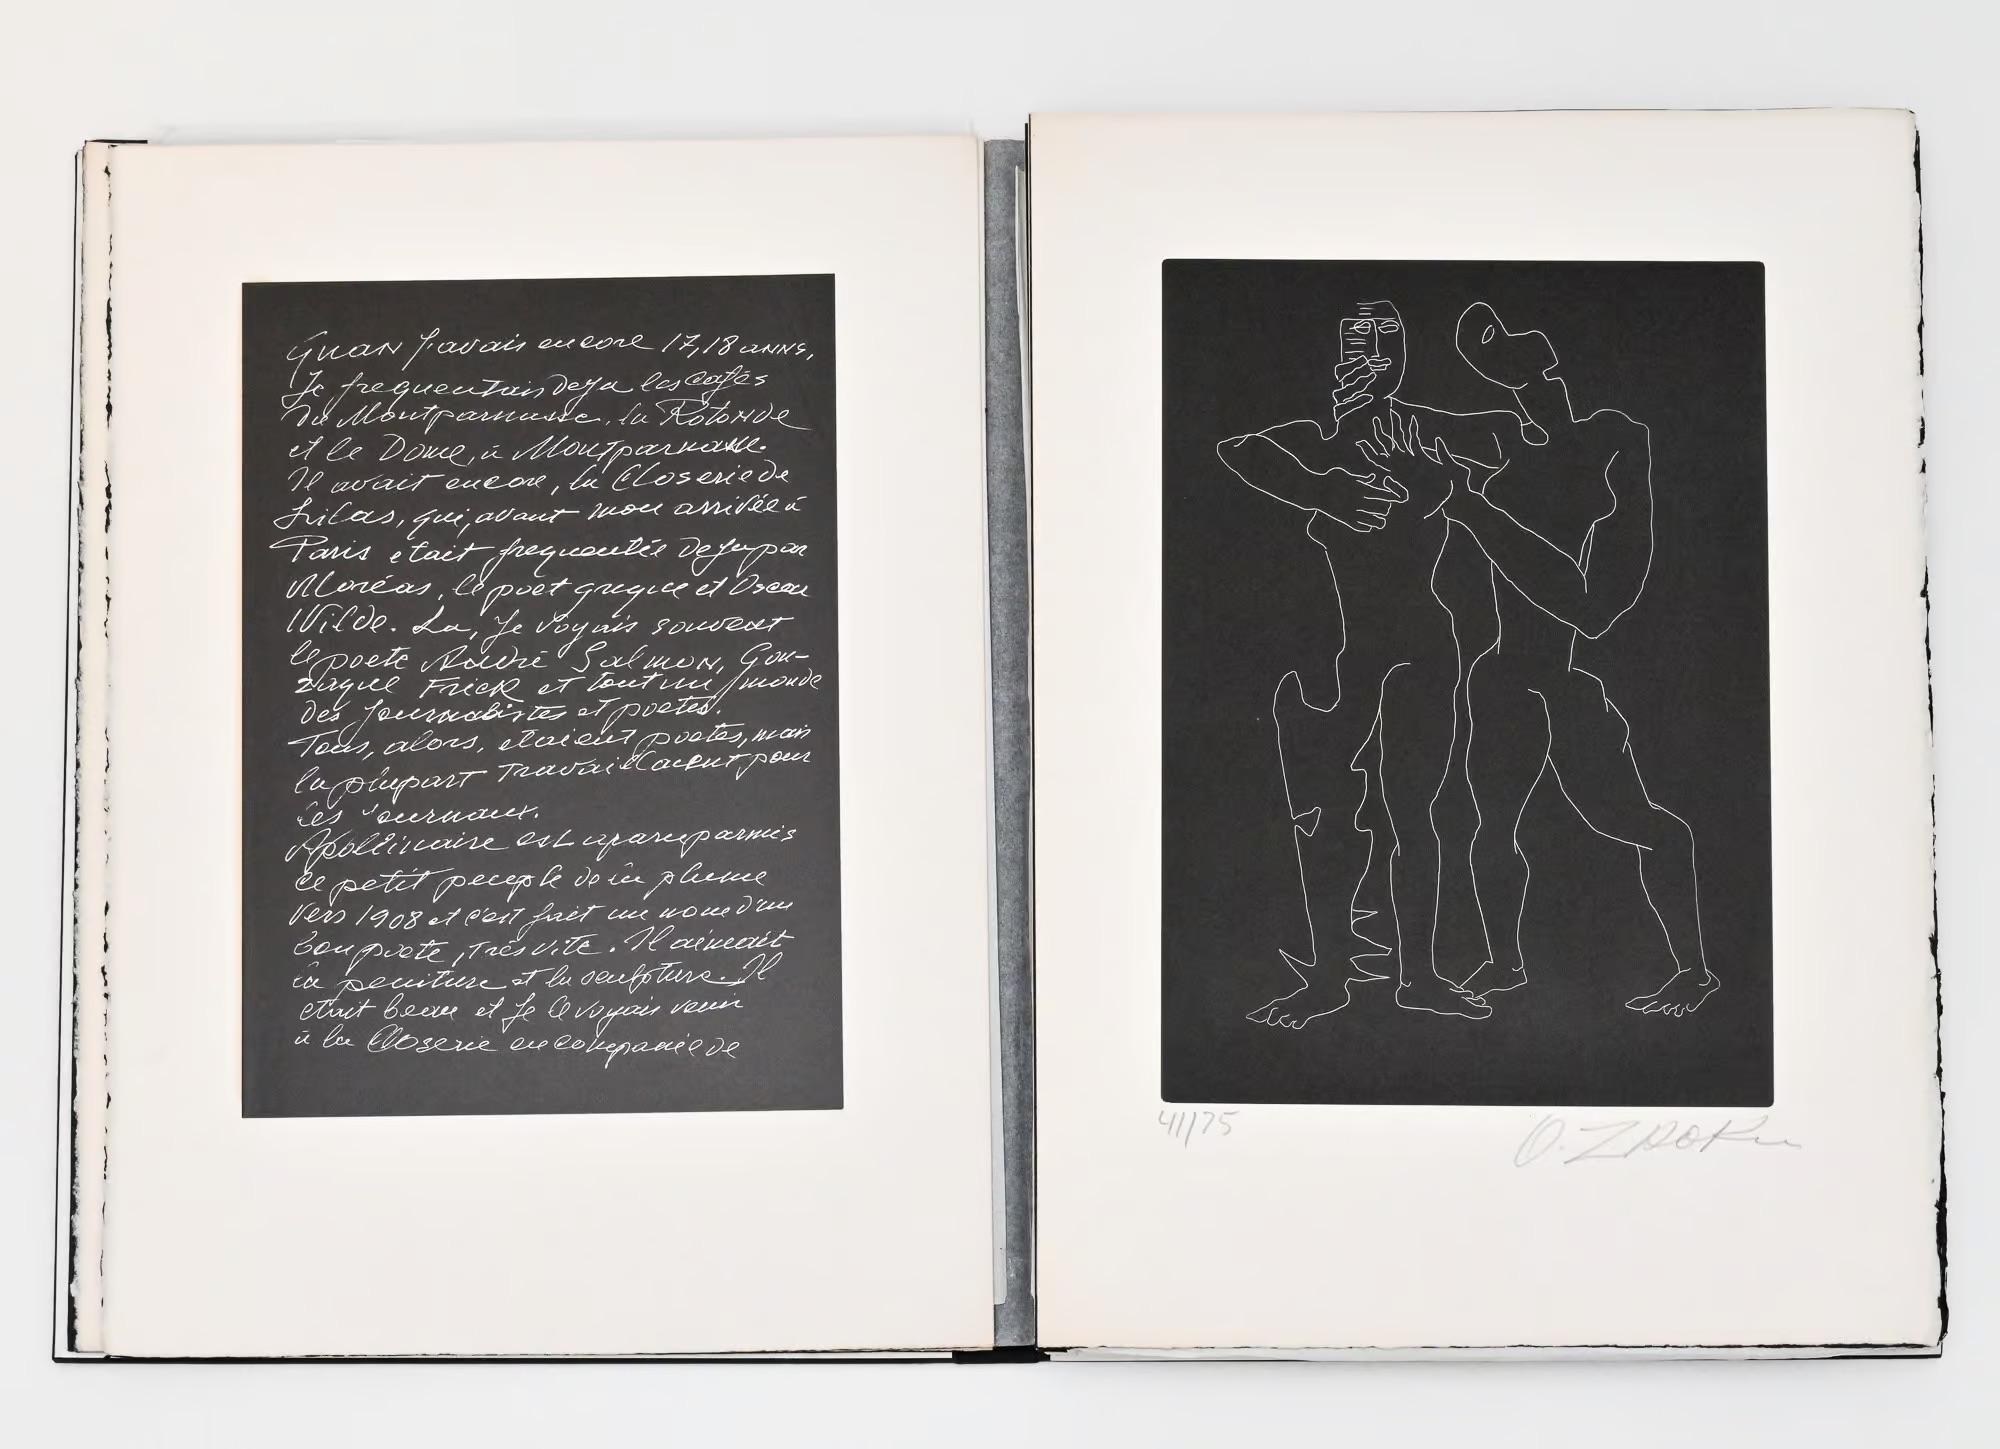 Quan J'avais encore 17,18 anns,
Je frequentais Deja les Cafés
Du Montparnasse, la Rotonde
et le Dome, à Montparnasse.
Il avait encore, la Closerie de
Lilas, qui, avant mon arrivée à
Paris etait frequentée Deja par
Moréas, le poet greque et Oscar
Wilde. La, Je voyais souvent
le poete André Salmon, Gon-
zague Frick et tout un monde
Des Journalistes et poetes.
Tous, alors, etaient poetes, mais
la plupart Travaillaient pour
les Journaux.
Apollinaire est aparu parmis
ce petit peuple de la plume
vers 1908 et c'est fait un nom d'un
bon poete, très vite. Il aimait
la peniture et la sculpture. Il
etait beau et Je le voyais venir
à la Closerie en compagnie de
41/75
O. ZADKine